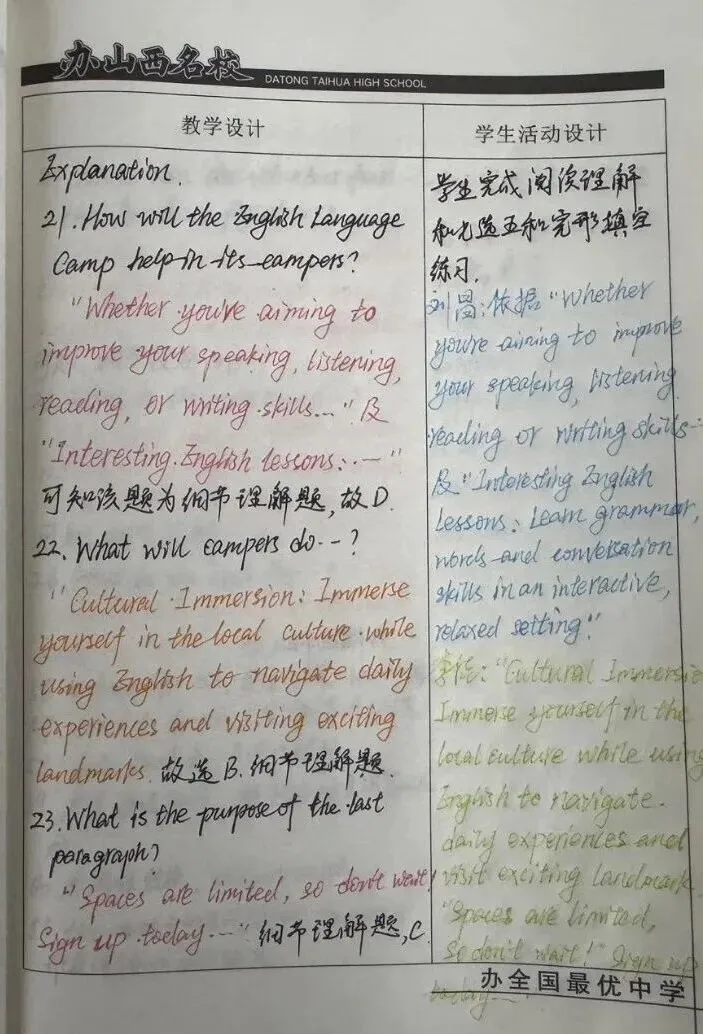 办山西名校
DATONG TAIHUA HIGH SCHOOL
教学设计
Explanation.
21. How will the English Language
Camp help in its campers?
"Whether you're aiming to
improve your speaking, listening,
reading, or writing skills..." 及
"Interesting English lessons: ..."
可知该题为细节理解题,故D.
22. What will campers do...?
"Cultural Immersion: Immerse
yourself in the local culture while
using English to navigate daily
experiences and visiting exciting
landmarks. 故选B. 细节理解题.
23. What is the purpose of the last
paragraph?
"Spaces are limited, so don't wait!
Sign up today..." 细节理解题, C
学生活动设计
学生完成阅读理解
和七选五和完形填空
练习.
刘昌:依据"Whether
you're aiming to improve
your speaking, listening
reading or writing skills...
及"Interesting English
Lessons: Learn grammar,
words and conversation
skills in an interactive,
relaxed setting."
"Cultural Immersio
Immerse yourself in the
local culture while using
English to navigate
daily experiences and
visit exciting landmark
"Spaces are limited,
So don't wait!" Sign up
today...
办全国最优中学